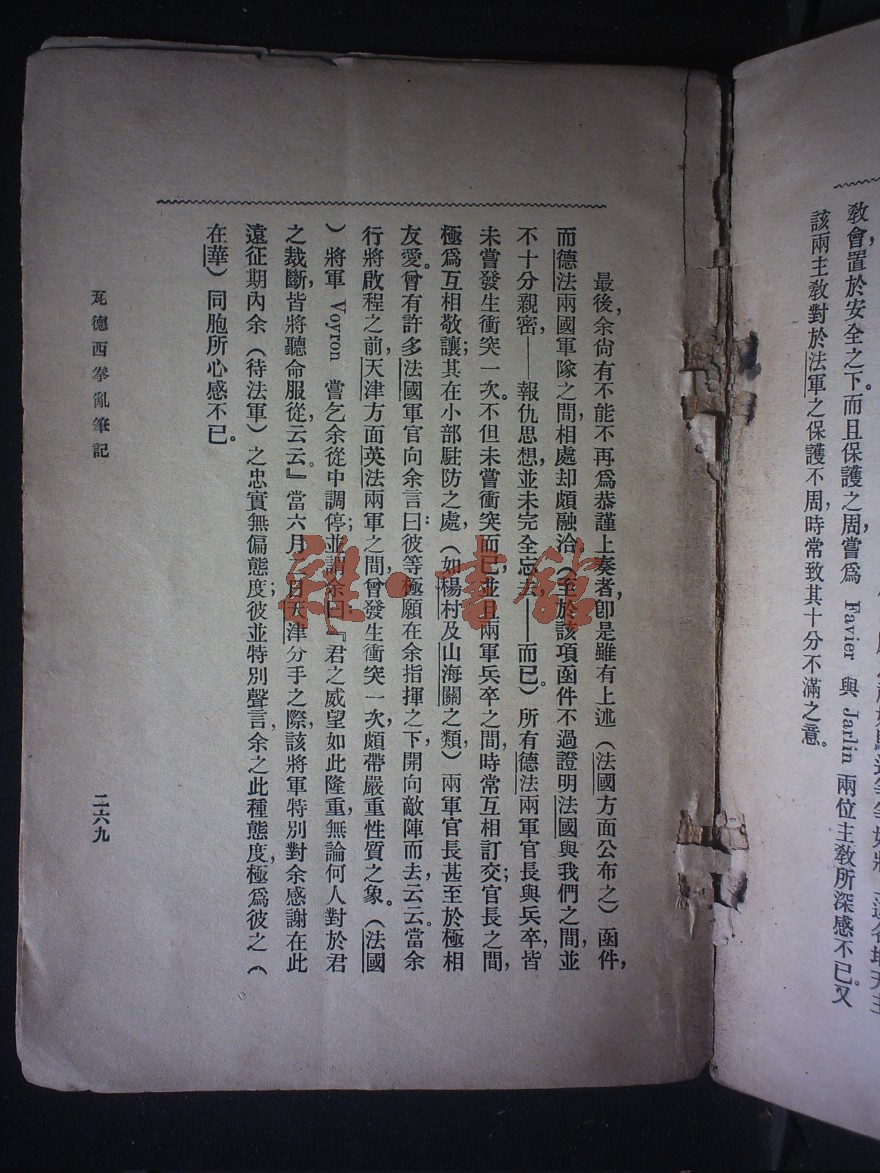 教會置於安全之下。而且保護之周，嘗爲 Favier 與 Jarlin 兩位主敎所深感不已。又
該兩主敎對於法軍之保護不周，時常致其十分不滿之意。
最後，余尙有不能不再爲恭謹上奏者，卽是雖有上述（法國方面公布之）函件，
而德法兩國軍隊之間，相處却頗融洽（至於該項函件，不過證明法國與我們之間，並
不十分親密——報仇思想，並未完全忘去——而已）。所有德法兩軍官長與兵卒，皆
未嘗發生衝突一次。不但未嘗衝突而已，並且兩軍兵卒之間，時常互相訂交；官長之間，
極爲互相敬讓；其在小部駐防之處，（如楊村及山海關之類）兩軍官長甚至於極相
友愛。曾有許多法國軍官向余言曰：彼等極願在余指揮之下，開向敵陣而去，云云。當余
行將啟程之前，天津方面英法兩軍之間，曾發生衝突一次，頗帶嚴重性質之象。（法國
）將軍 Voyron 嘗乞余從中調停；並謂余曰：『君之威望如此隆重，無論何人對於君
之裁斷，皆將聽命服從，云云。』當六月 日天津分手之際，該將軍特別對余感謝在此
遠征期內余（待法軍）之忠實無偏態度；彼並特別聲言，余之此種態度，極爲彼之（
在華）同胞所心感不已。
瓦德西拳亂筆記
二六九
雜·書館